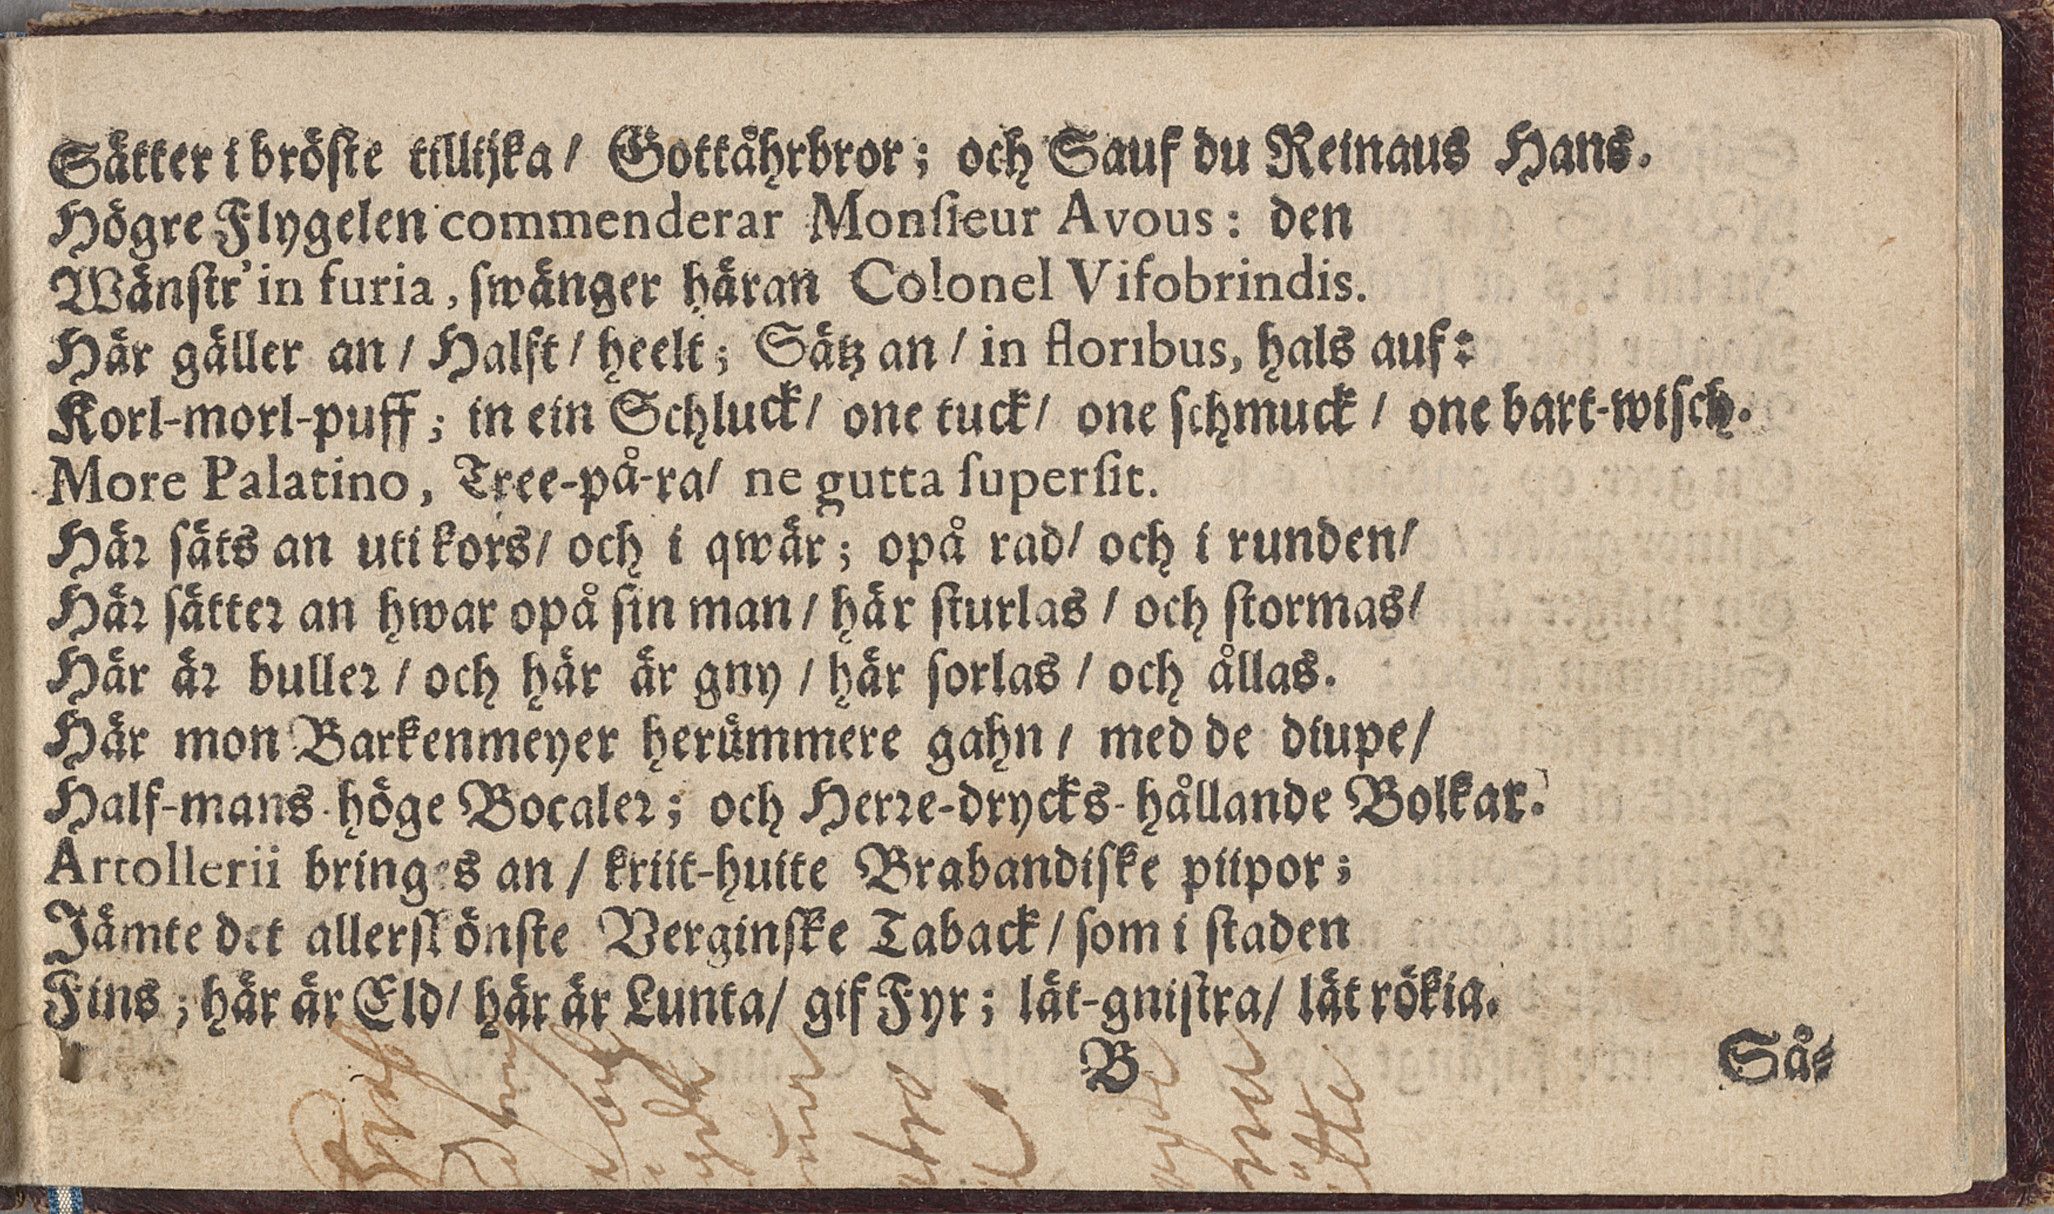 Sätter i bröste tilltijka / Gottåhrbror; och Sauf du Reinaus Hans.
Högre Flygelen commenderar Monsieur Avous: den
Wänstr' in furia, swänger häran Colonel Vifobrindis.
Här gäller an / Halft / heelt; Sätz an / in floribus, hals auf:
Korl-morl-puff; in ein Schluck / one tuck / one schmuck / one bart-wisch.
More Palatino, Tree-på-ra / ne gutta supersit.
Här säts an uti kors / och i qwär; opå rad / och i runden /
Här sätter an hwar opå sin man / här sturlas / och stormas /
Här är buller / och här är gny / här sorlas / och ållas.
Här mon Barkenmeyer herümmere gahn / med de diupe /
Half-mans-höge Bocaler; och Herre-drycks-hållande Bolkar.
Artollerii bringes an / kriit-huite Brabandiske piipor;
Jämte det allerskönste Verginske Taback / som i staden
Fins; här är Eld / här är Lunta / gif Fyr; lät-gnistra / lät rökia.
B Så-